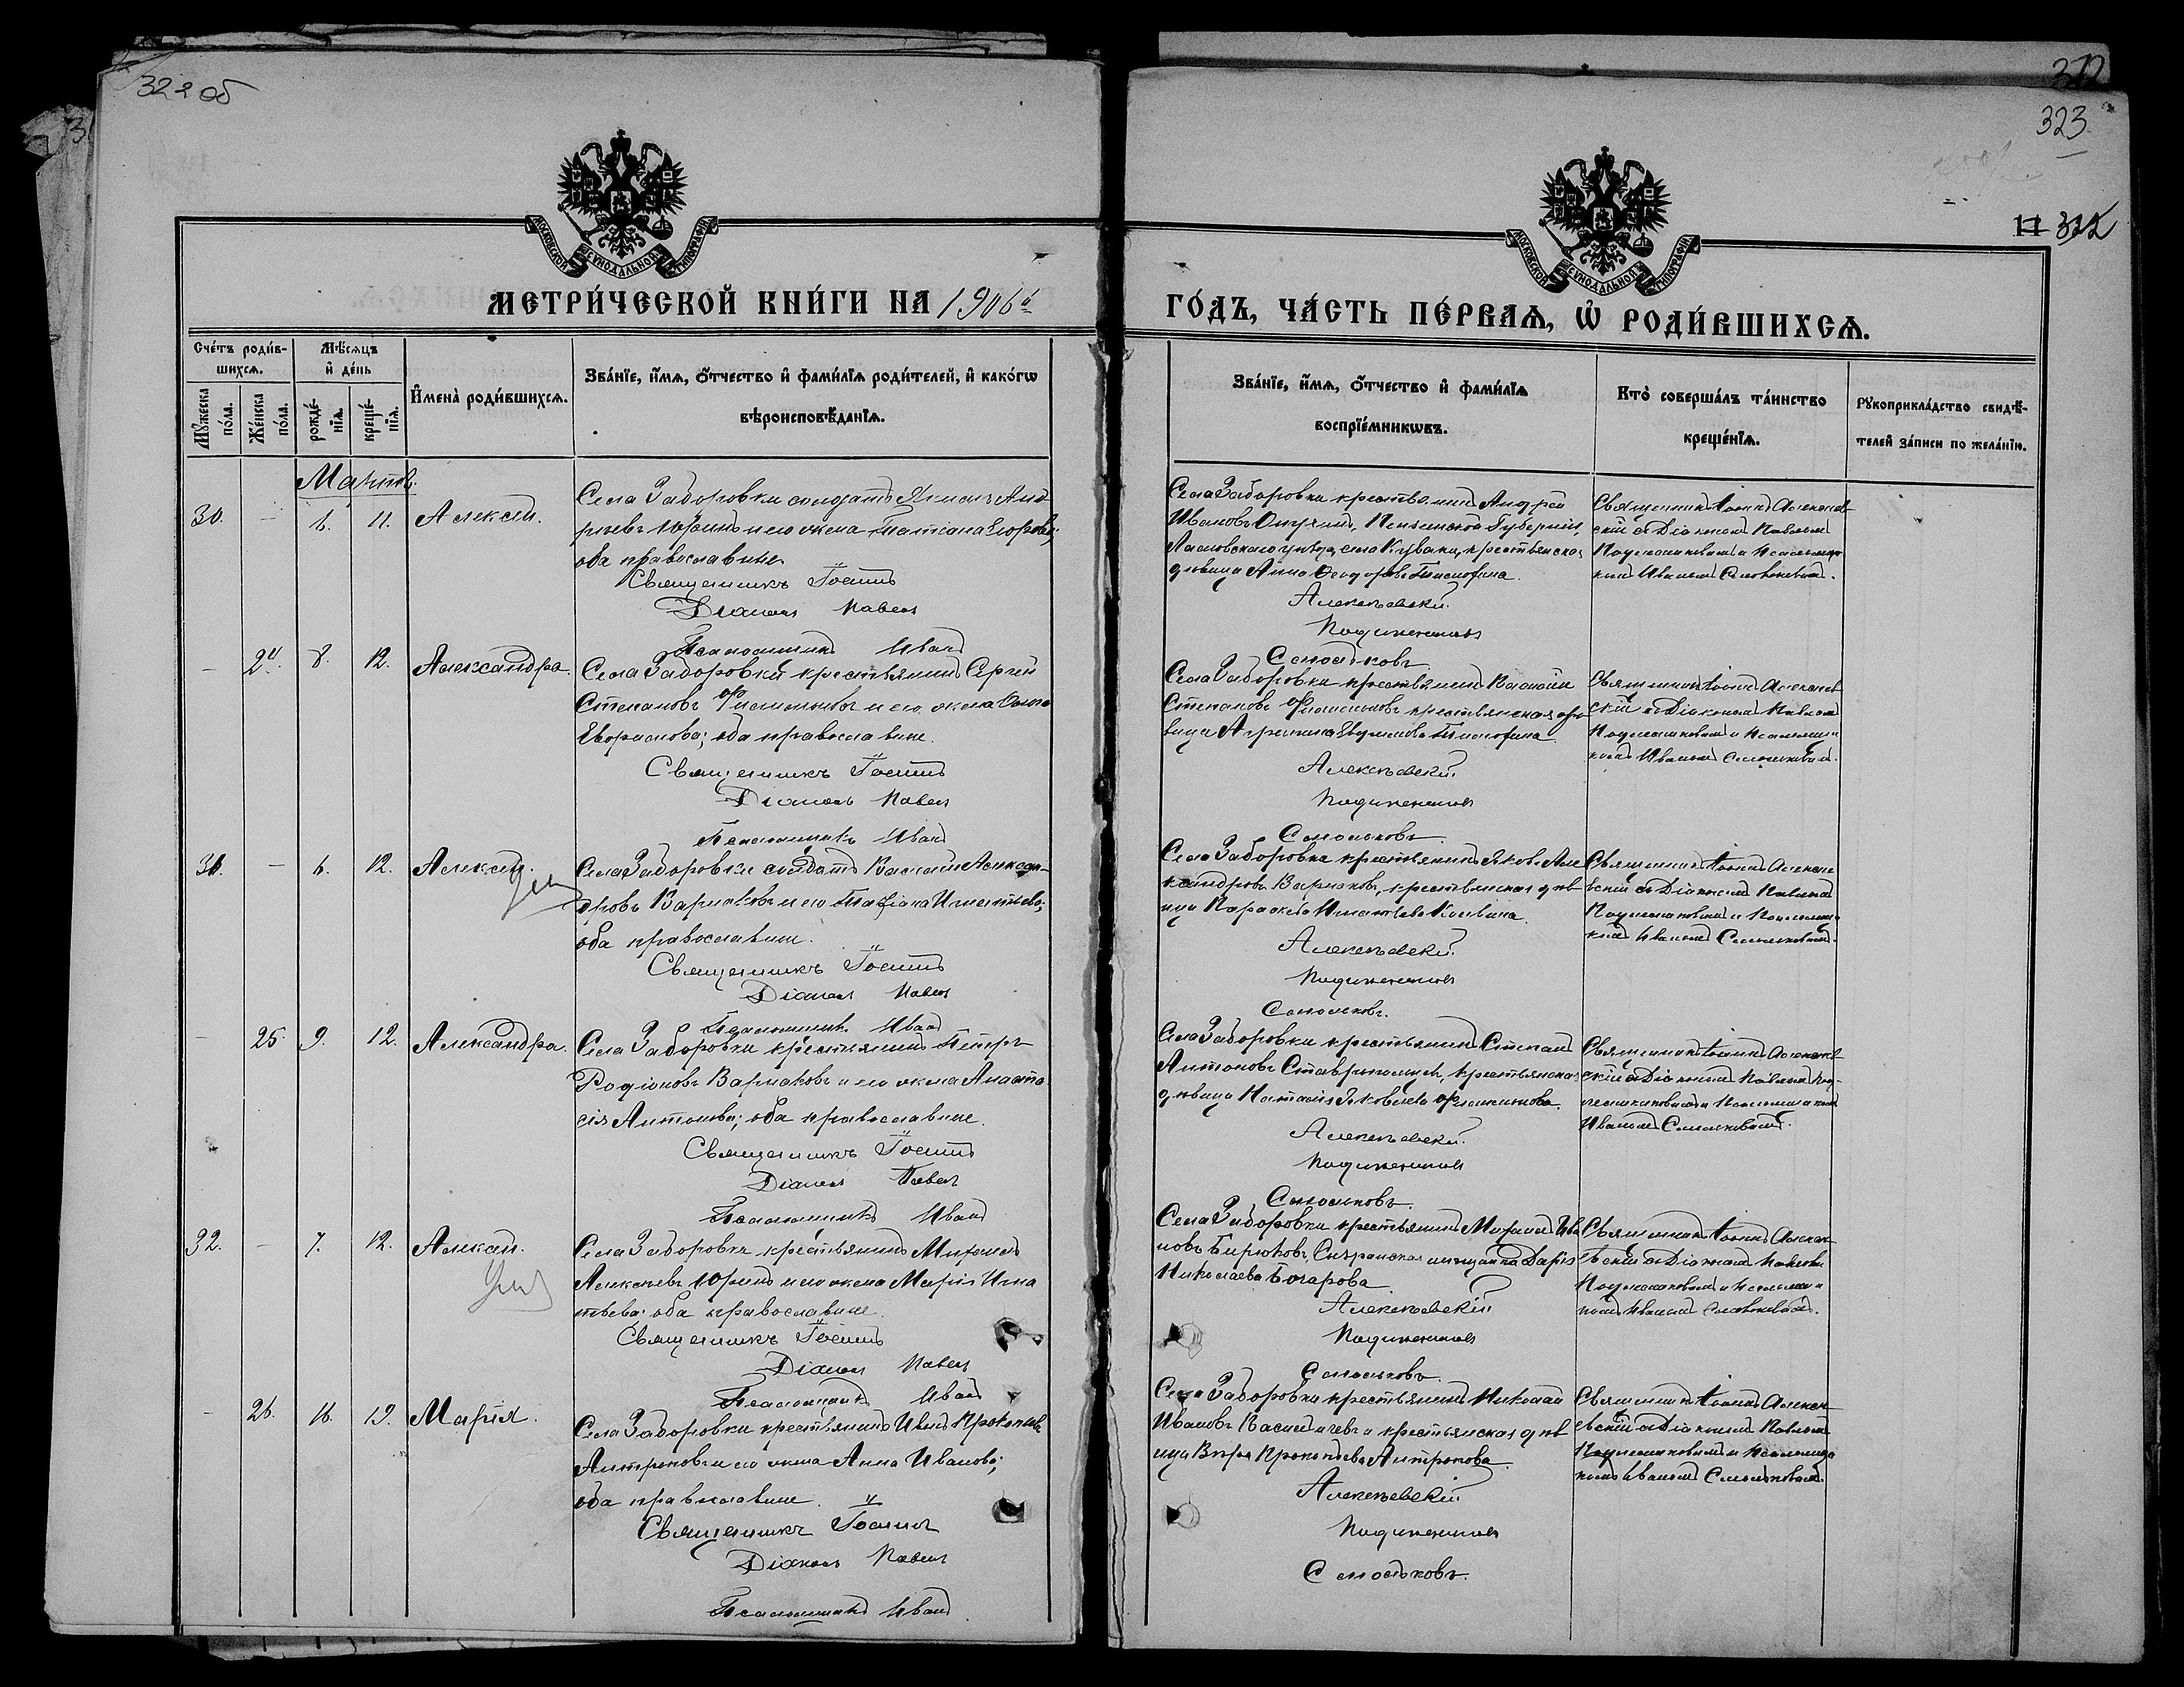 322 об
312
323
11 322
МОСКОВСКОЙ СѴНОДАЛЬНОЙ ТИПОГРАФІИ
МОСКОВСКОЙ СѴНОДАЛЬНОЙ ТИПОГРАФІИ
МЕТРИ́ЧЕСКОЙ КНИ́ГИ НА 1906й
ГО́ДЪ, ЧА́СТЬ ПЕ́РВАѦ, Ѡ҆ РОДИ́ВШИХСѦ.
Сче́тъ роди́в-
шихсѧ.
Мѣ́сѧцъ
и҆ де́нь
Му́жеска
по́ла.
Же́нска
по́ла.
рожде́-
нїѧ.
креще́-
нїѧ.
И҆мена̀ роди́вшихсѧ.
Зва́нїе, и҆́мѧ, ѻ҆́тчество и҆ фами́лїѧ роди́телей, и҆ како́гѡ
вѣроисповѣ́данїѧ.
Зва́нїе, и҆́мѧ, ѻ҆́тчество и҆ фами́лїѧ
воспрїе́мникѡвъ.
Кто̀ соверша́лъ та́инство
креще́нїѧ.
Рꙋкоприкла́дство свидѣ́-
телей за́писи по жела́нїю.
Мартъ.
30. - 6. 11. Алексѣй.
Села Заборовки солдатъ
Юринъ и его жена Татіана Егорова;
оба православные.
Священникъ Іоаннъ
Діаконъ Павелъ
Псаломщикъ Иванъ
Села Заборовки крестьянинъ Андрей
Ивановъ Пензенской губерніи,
села крестьянская
дѣвица Анна Ѳеодорова
Алексѣевскій
Подлесниковъ
Смольковъ.
Священникъ Іоаннъ Алексѣев-
скій съ Діакономъ Павломъ
и Псаломщи-
комъ Иваномъ Смольковымъ.
- 24. 8. 12. Александра.
Села Заборовки крестьянинъ Сергей
Степановъ Филимоновъ и его жена
оба православные.
Священникъ Іоаннъ
Діаконъ Павелъ
Псаломщикъ Иванъ
Села Заборовки крестьянинъ
Степановъ Филимоновъ, крестьянская дѣ-
вица Агрипина
Алексѣевскій
Подлесниковъ
Смольковъ.
Священникъ Іоаннъ Алексѣев-
скій съ Діакономъ Павломъ
и Псаломщи-
комъ Иваномъ Смольковымъ.
31. - 6. 12. Алексѣй.
Села Заборовки солдатъ Василій Алексан-
дровъ Варлаковъ и его Татіана Игнатьева;
оба православные.
Священникъ Іоаннъ
Діаконъ Павелъ
Псаломщикъ Иванъ
Села Заборовки крестьянинъ Яковъ Але-
ксандровъ Варлаковъ, крестьянская дѣв-
ица Параскева Игнатьева
Алексѣевскій
Подлесниковъ
Смольковъ.
Священникъ Іоаннъ Алексѣе-
вскій съ Діакономъ Павломъ
и Псаломщи-
комъ Иваномъ Смольковымъ.
- 25. 9. 12. Александра.
Села Заборовки крестьянинъ Петръ
Родіоновъ Варлаковъ и его жена Анаста-
сія Антонова; оба православные.
Священникъ Іоаннъ
Діаконъ Павелъ
Псаломщикъ Иванъ
Села Заборовки крестьянинъ Степанъ
Антоновъ крестьянская
дѣвица Наталія Яковлева Филимонова.
Алексѣевскій
Подлесниковъ
Смольковъ.
Священникъ Іоаннъ Алексѣев-
скій съ Діакономъ Павломъ Под-
лесниковымъ и Псаломщикомъ
Иваномъ Смольковымъ.
32. - 7. 12. Алексѣй.
Села Заборовки крестьянинъ Михаилъ
Алексѣевъ Юринъ и его жена Марія Игна-
тьева; оба православные.
Священникъ Іоаннъ
Діаконъ Павелъ
Псаломщикъ Иванъ
Села Заборовки крестьянинъ Михаилъ Ива-
новъ Бирюковъ, Сызранская мѣщанка Дарія
Николаева Бочарова.
Алексѣевскій
Подлесниковъ
Смольковъ.
Священникъ Іоаннъ Алексѣе-
вскій съ Діакономъ Павломъ
и Псаломщи-
комъ Иваномъ Смольковымъ.
- 26. 16. 19. Марія.
Села Заборовки крестьянинъ Иванъ Прокопьевъ
Антроповъ и его жена Анна Иванова;
оба православные.
Священникъ Іоаннъ
Діаконъ Павелъ
Псаломщикъ Иванъ
Села Заборовки крестьянинъ Николай
Ивановъ и крестьянская дѣв-
ица Вѣра Прокопьева Антропова.
Алексѣевскій
Подлесниковъ
Смольковъ.
Священникъ Іоаннъ Алексѣ-
евскій съ Діакономъ Павломъ
и Псаломщи-
комъ Иваномъ Смольковымъ.